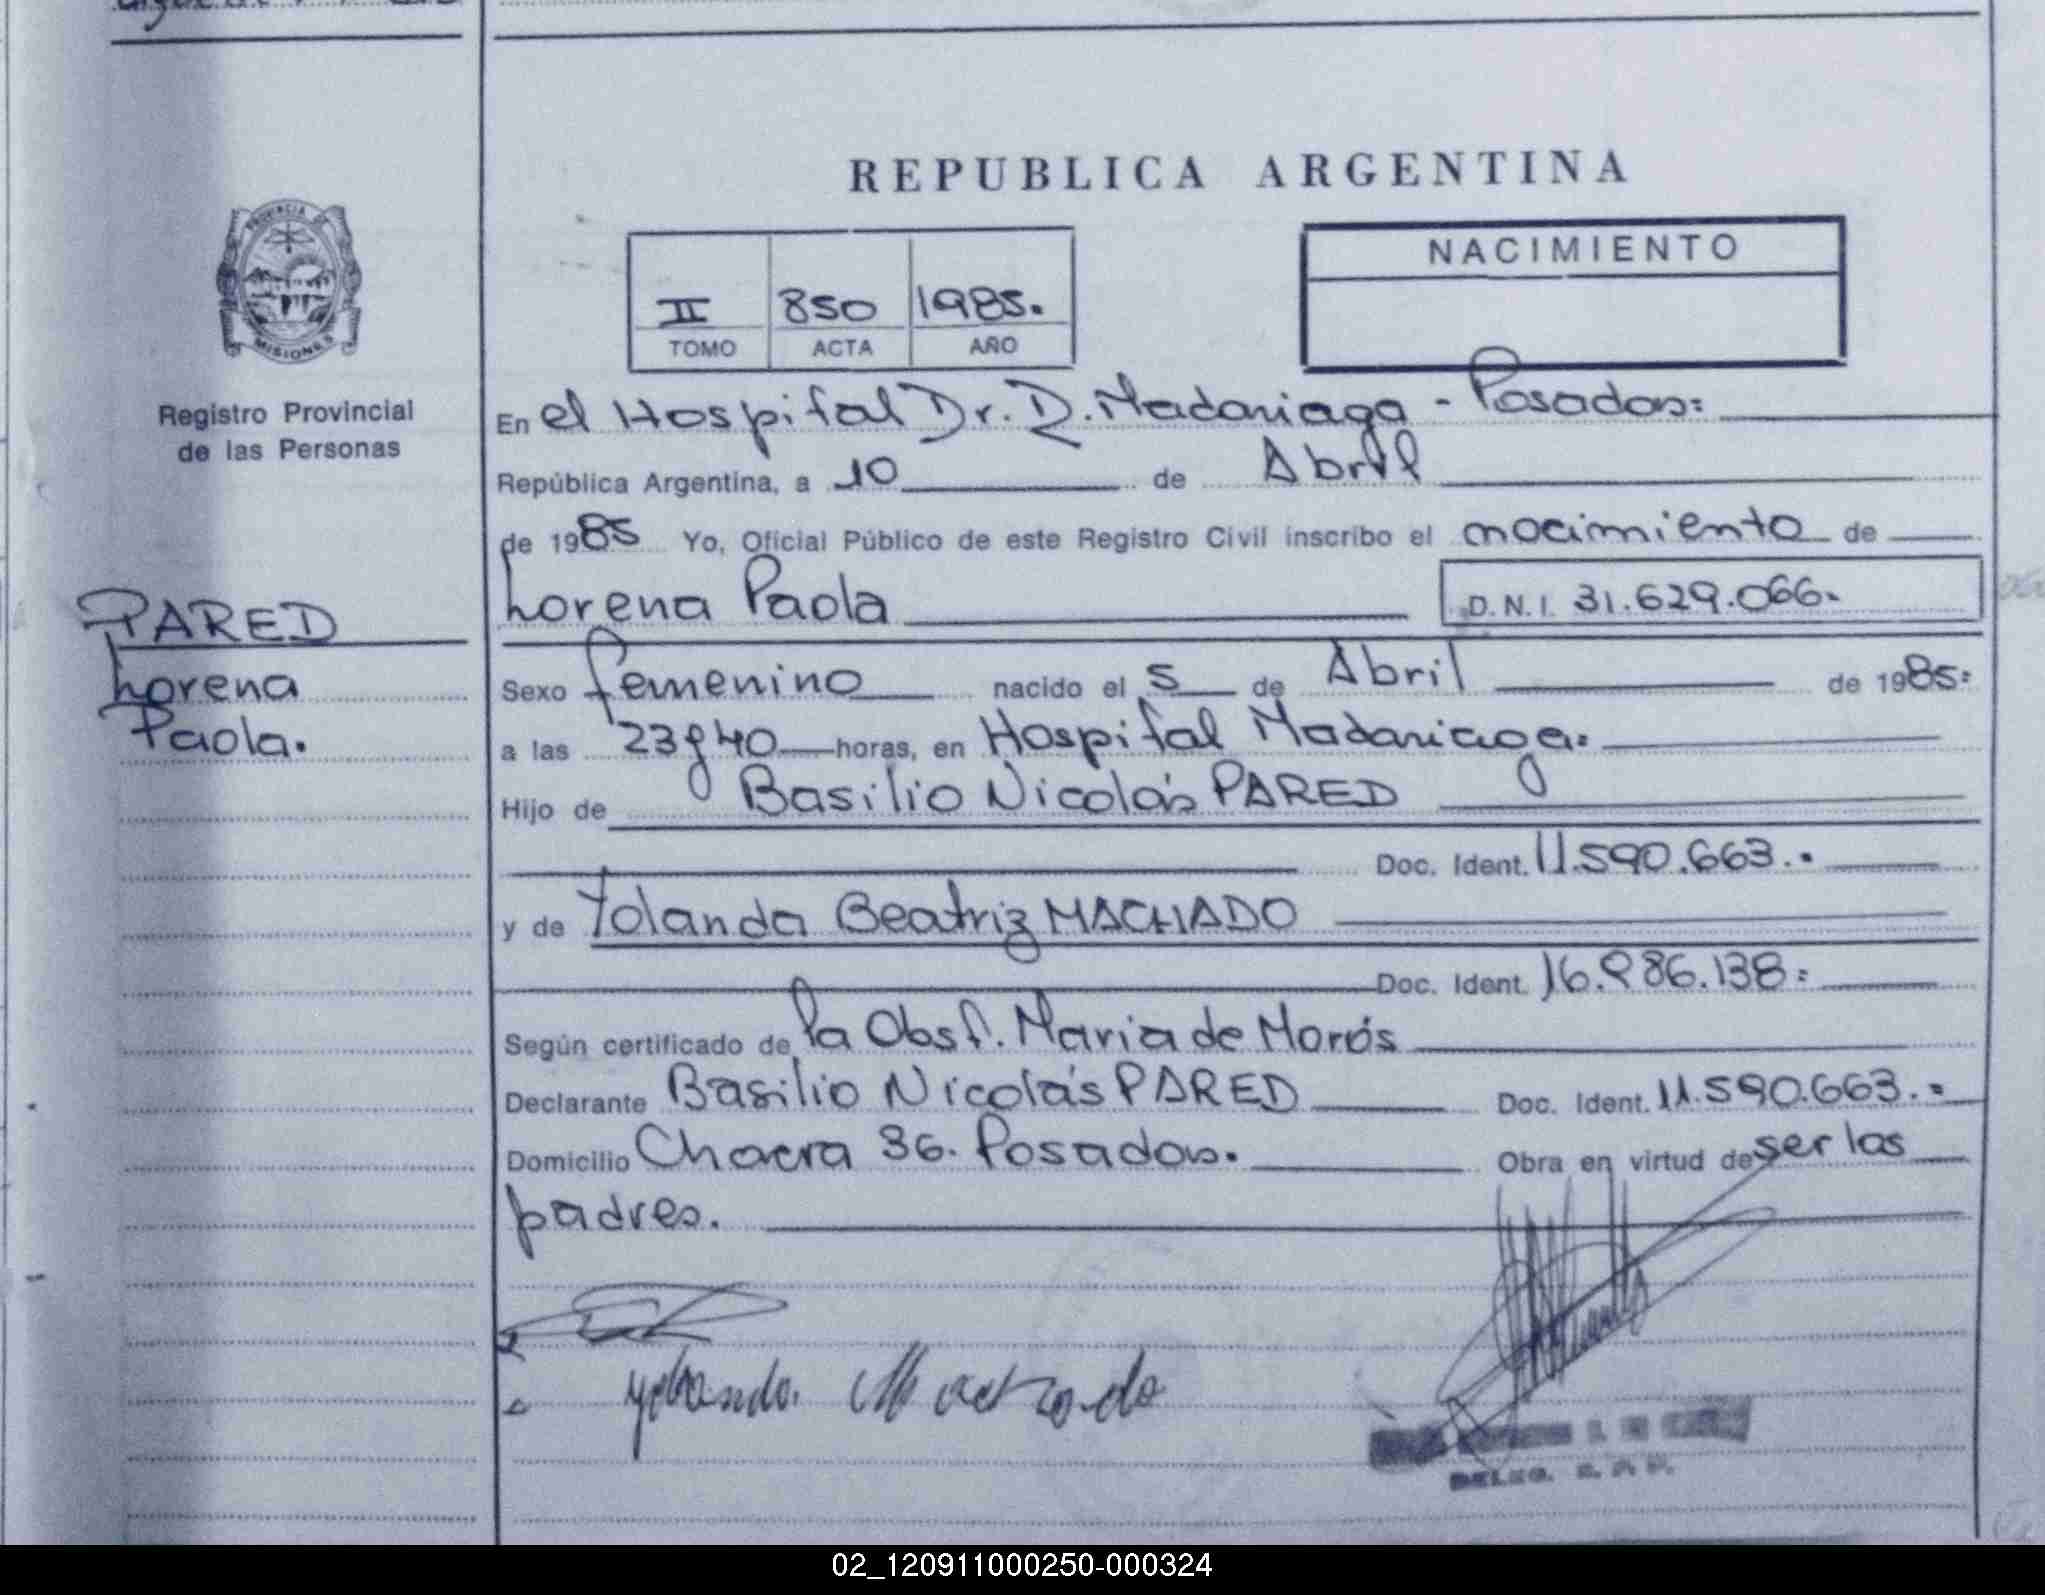 REPUBLICA ARGENTINA
PROVINCIA DE
MISIONES
Registro Provincial
de las Personas
II 850 1985.
TOMO ACTA AÑO
NACIMIENTO
En el Hospital Dr. R. Madariaga - Posadas=
República Argentina, a 10 de Abril
de 1985 Yo, Oficial Público de este Registro Civil inscribo el nacimiento de
Lorena Paola D.N.I. 31.629.066.
PARED
Lorena
Paola.
Sexo femenino nacido el 5 de Abril de 1985=
a las 23y40 horas, en Hospital Madariaga.
Hijo de Basilio Nicolás PARED
Doc. Ident. 11.590.663.
y de Yolanda Beatriz MACHADO
Doc. Ident. 16.986.138=
Según certificado de la Obst. Maria de Morós
Declarante Basilio Nicolás PARED Doc. Ident. 11.590.663.=
Domicilio Chacra 36. Posadas. Obra en virtud de ser los
padres.
Yolanda Machado
02_120911000250-000324